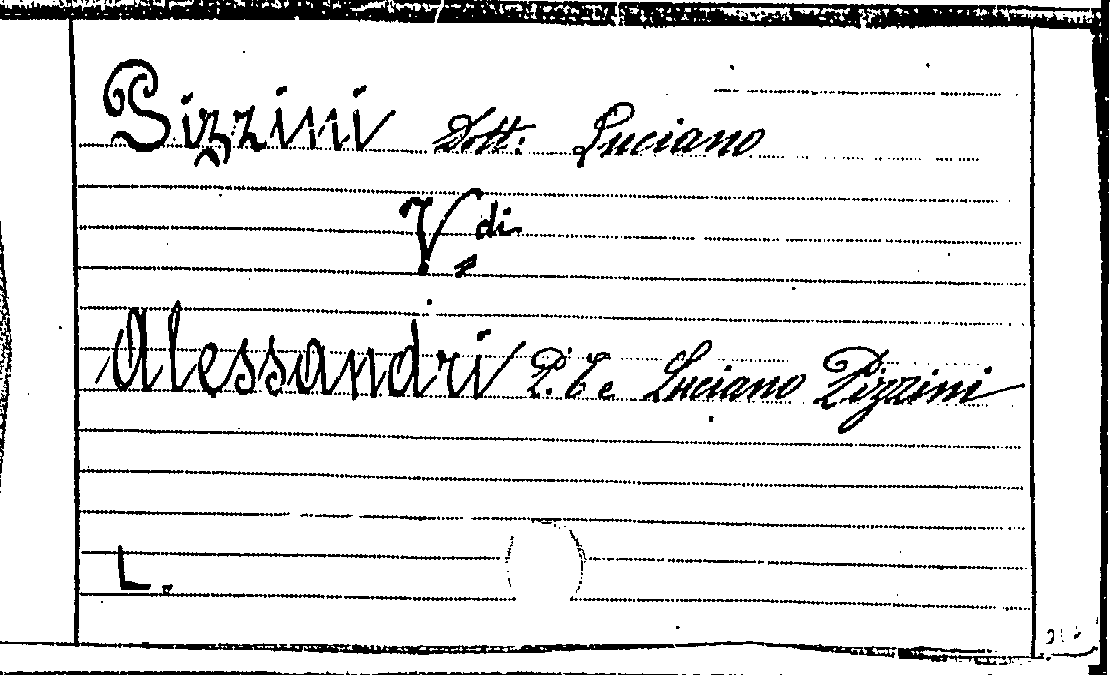 Pizzini Dott: Luciano
V. di
Alessandri P. T e Luciano Pizzini
L.